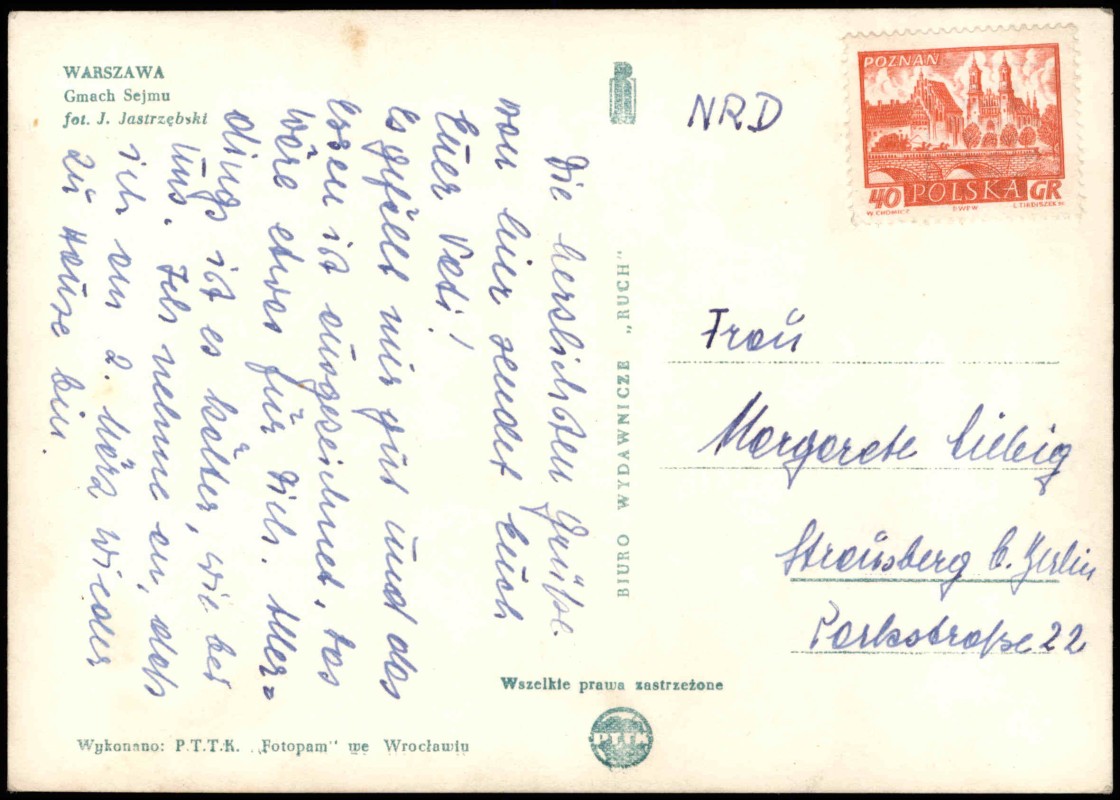 WARSZAWA
Gmach Sejmu
fot. J. Jastrzębski
Die herzlichsten Grüße
von hier sendet Euch
Euer Vati!
Es gefällt mir gut und das
Essen ist ausgezeichnet, das
wäre etwas für Dich. Aller=
dings ist es kälter, wie bei
uns. Ich nehme an, daß
ich am 2. März wieder
zu Hause bin.
BIURO WYDAWNICZE „RUCH"
NRD
POZNAŃ
40 POLSKA GR
W. CHOMICZ PWPW
Frau
Margarete Liebig
Strausberg b. Berlin
Parkstraße 22
Wszelkie prawa zastrzeżone
PTTK
Wykonano: P.T.T.K. „Fotopam" we Wrocławiu